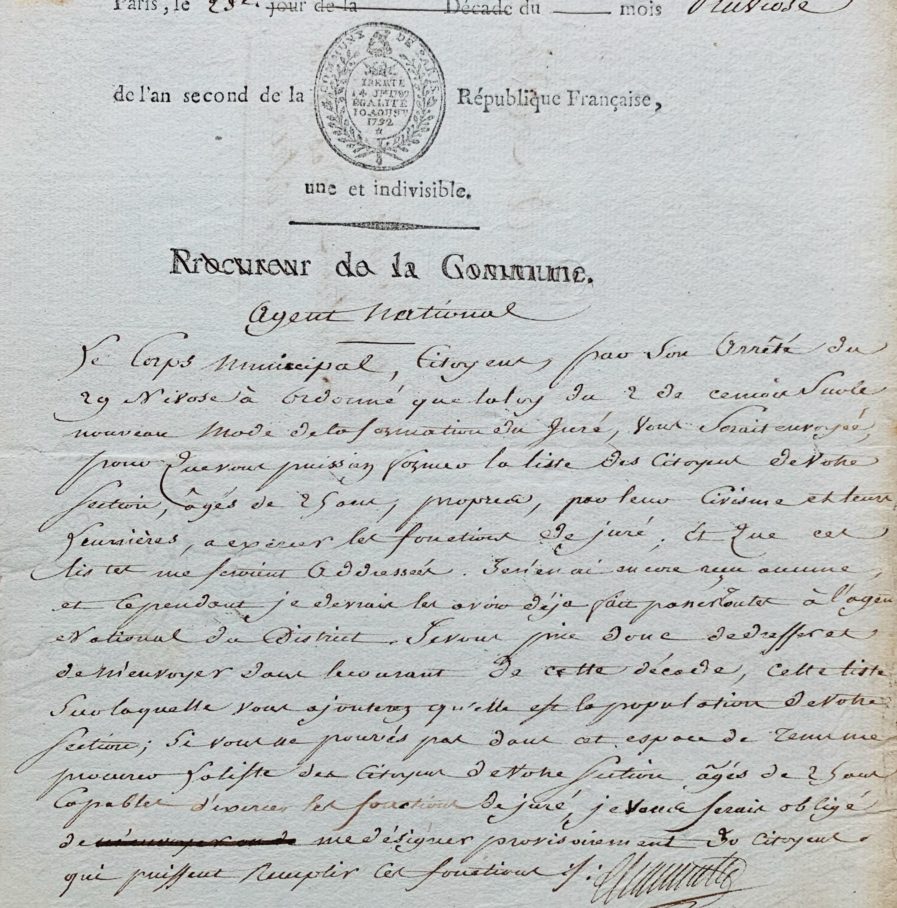 Paris, le 23e. jour de la Décade du mois Pluviose
COMMUNE DE PARIS
LIBERTE
14 JT 1789
EGALITÉ
10 AOUST
1792
de l'an second de la République Française,
une et indivisible.
Procureur de la Commune.
Agent National
Le Corps Municipal, Citoyens, par son Arrêté du
29 Nivose à ordonné que la loy du 2 de ce mois sur le
nouveau mode de la formation du Juré, vous serait envoyée,
pour que vous puissiez former la liste des Citoyens de votre
section, âgés de 25 ans, propres, par leur Civisme et leurs
Lumières, a exercer les fonctions de juré, Et que ces
listes me seroient Addressées. Je n'en ai encore reçu aucune,
et Cependant je devrais les avoir déja fait passer toutes à l'agent
National du District. Je vous prie donc de dresser et
de m'envoyer dans le courant de cette décade, cette liste
sur laquelle vous ajouterez qu'elle est la population de votre
section; Si vous ne pouvés pas dans cet espace de tems me
procurer la liste des Citoyens de votre section âgés de 25 ans
Capables d'exercer les fonctions de juré, je vous serais obligé
de m'envoyer ou de me désigner provisoirement 30 Citoyens
qui puissent remplir ces fonctions